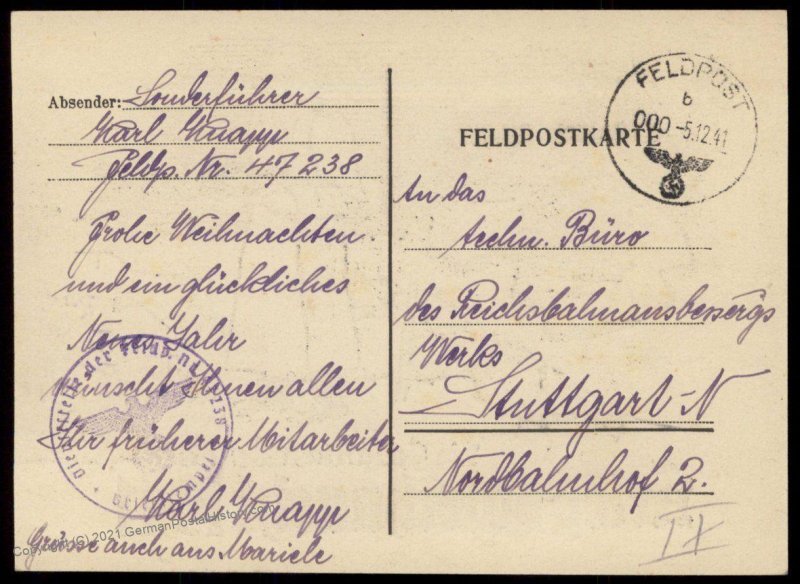 Absender: Sonderführer
Karl Knapp
Feldp. Nr. 47238
Frohe Weihnachten
und ein glückliches
Neues Jahr
wünscht Ihnen allen
Ihr früherer Mitarbeiter
Karl Knapp
Grüsse auch aus Mariele
FELDPOST
b
000 -5.12.41
FELDPOSTKARTE
An das
techn. Büro
des Reichsbahnausbessergs
Werks
Stuttgart-N
Nordbahnhof 2.
IX
Dienststelle der Feldp. Nr. 47238
Copyright (C) 2021 GermanPostalHistory.com